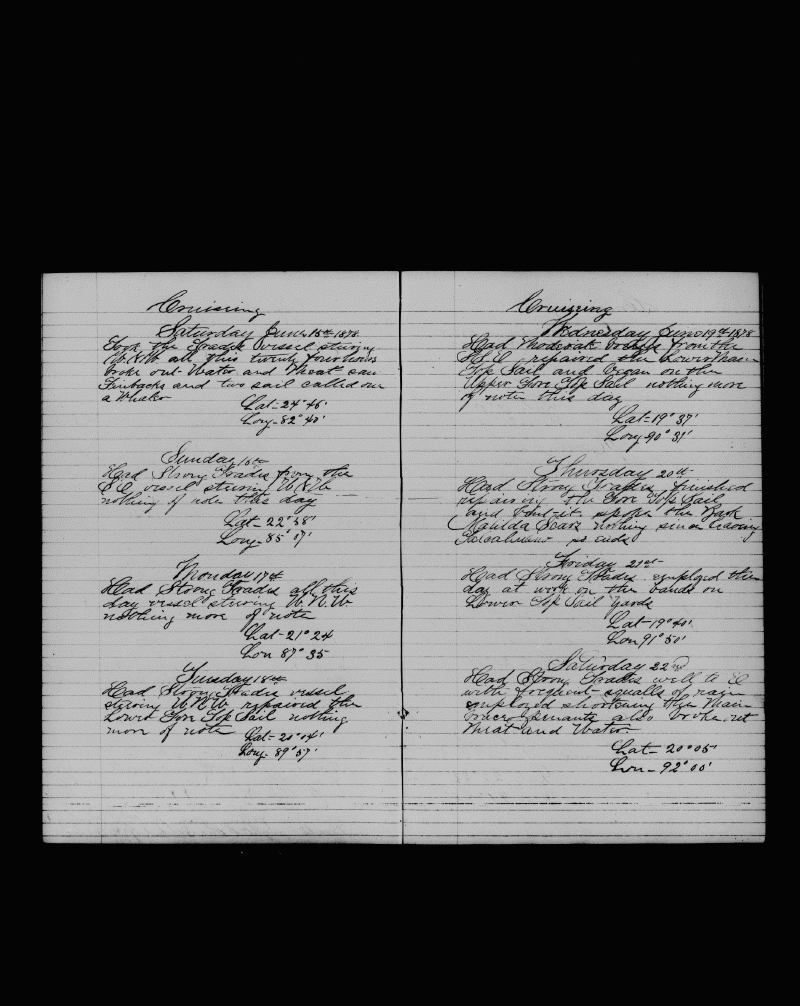 Cruissing
Saturday June 15th 1878
Took the Trades vessel stering
W.N.W all this twenty four hours
broke out Water and Meat saw
Finbacks and two sail called one
a Whaler
Lat = 24° 46'
Long - 82° 40'
Sunday 16th
Had Strong Trades from the
S.E vessel stering W.N.W
nothing of note this day
Lat - 22° 58'
Long - 85° 07'
Monday 17th
Had Strong Trades all this
day vessel stering W.N.W
nothing more of note
Lat - 21° 24
Lon 87° 35
Tuesday 18th
Had Strong Trades vessel
stering W.N.W repaired the
Lower Fore Top Sail nothing
more of note
Lat = 20° 04'
Long - 89° 57'
Cruissing
Wednesday June 19th 1878
Had Moderate from the
S.S.E repaired the Lower Main
Top Sail and began on the
Upper Fore Top Sail nothing more
of note this day
Lat = 19° 37'
Long 90° 31'
Thursday 20th
Had Strong Trades finished
repairing the Fore Top Sail
and bent it spoke the Bark
Matilda Sears nothing since leaving
Talcahuano so ends
Friday 21st
Had Strong Trades employed this
day at work on the bands on
Lower Top Sail Yards
Lat - 19° 40'
Lon 91° 50'
Saturday 22nd
Had Strong Trades well to E
with frequent squalls of rain
employed shortening the Main
also broke out
Meat and Water
Lat - 20° 05'
Lon - 92° 00'